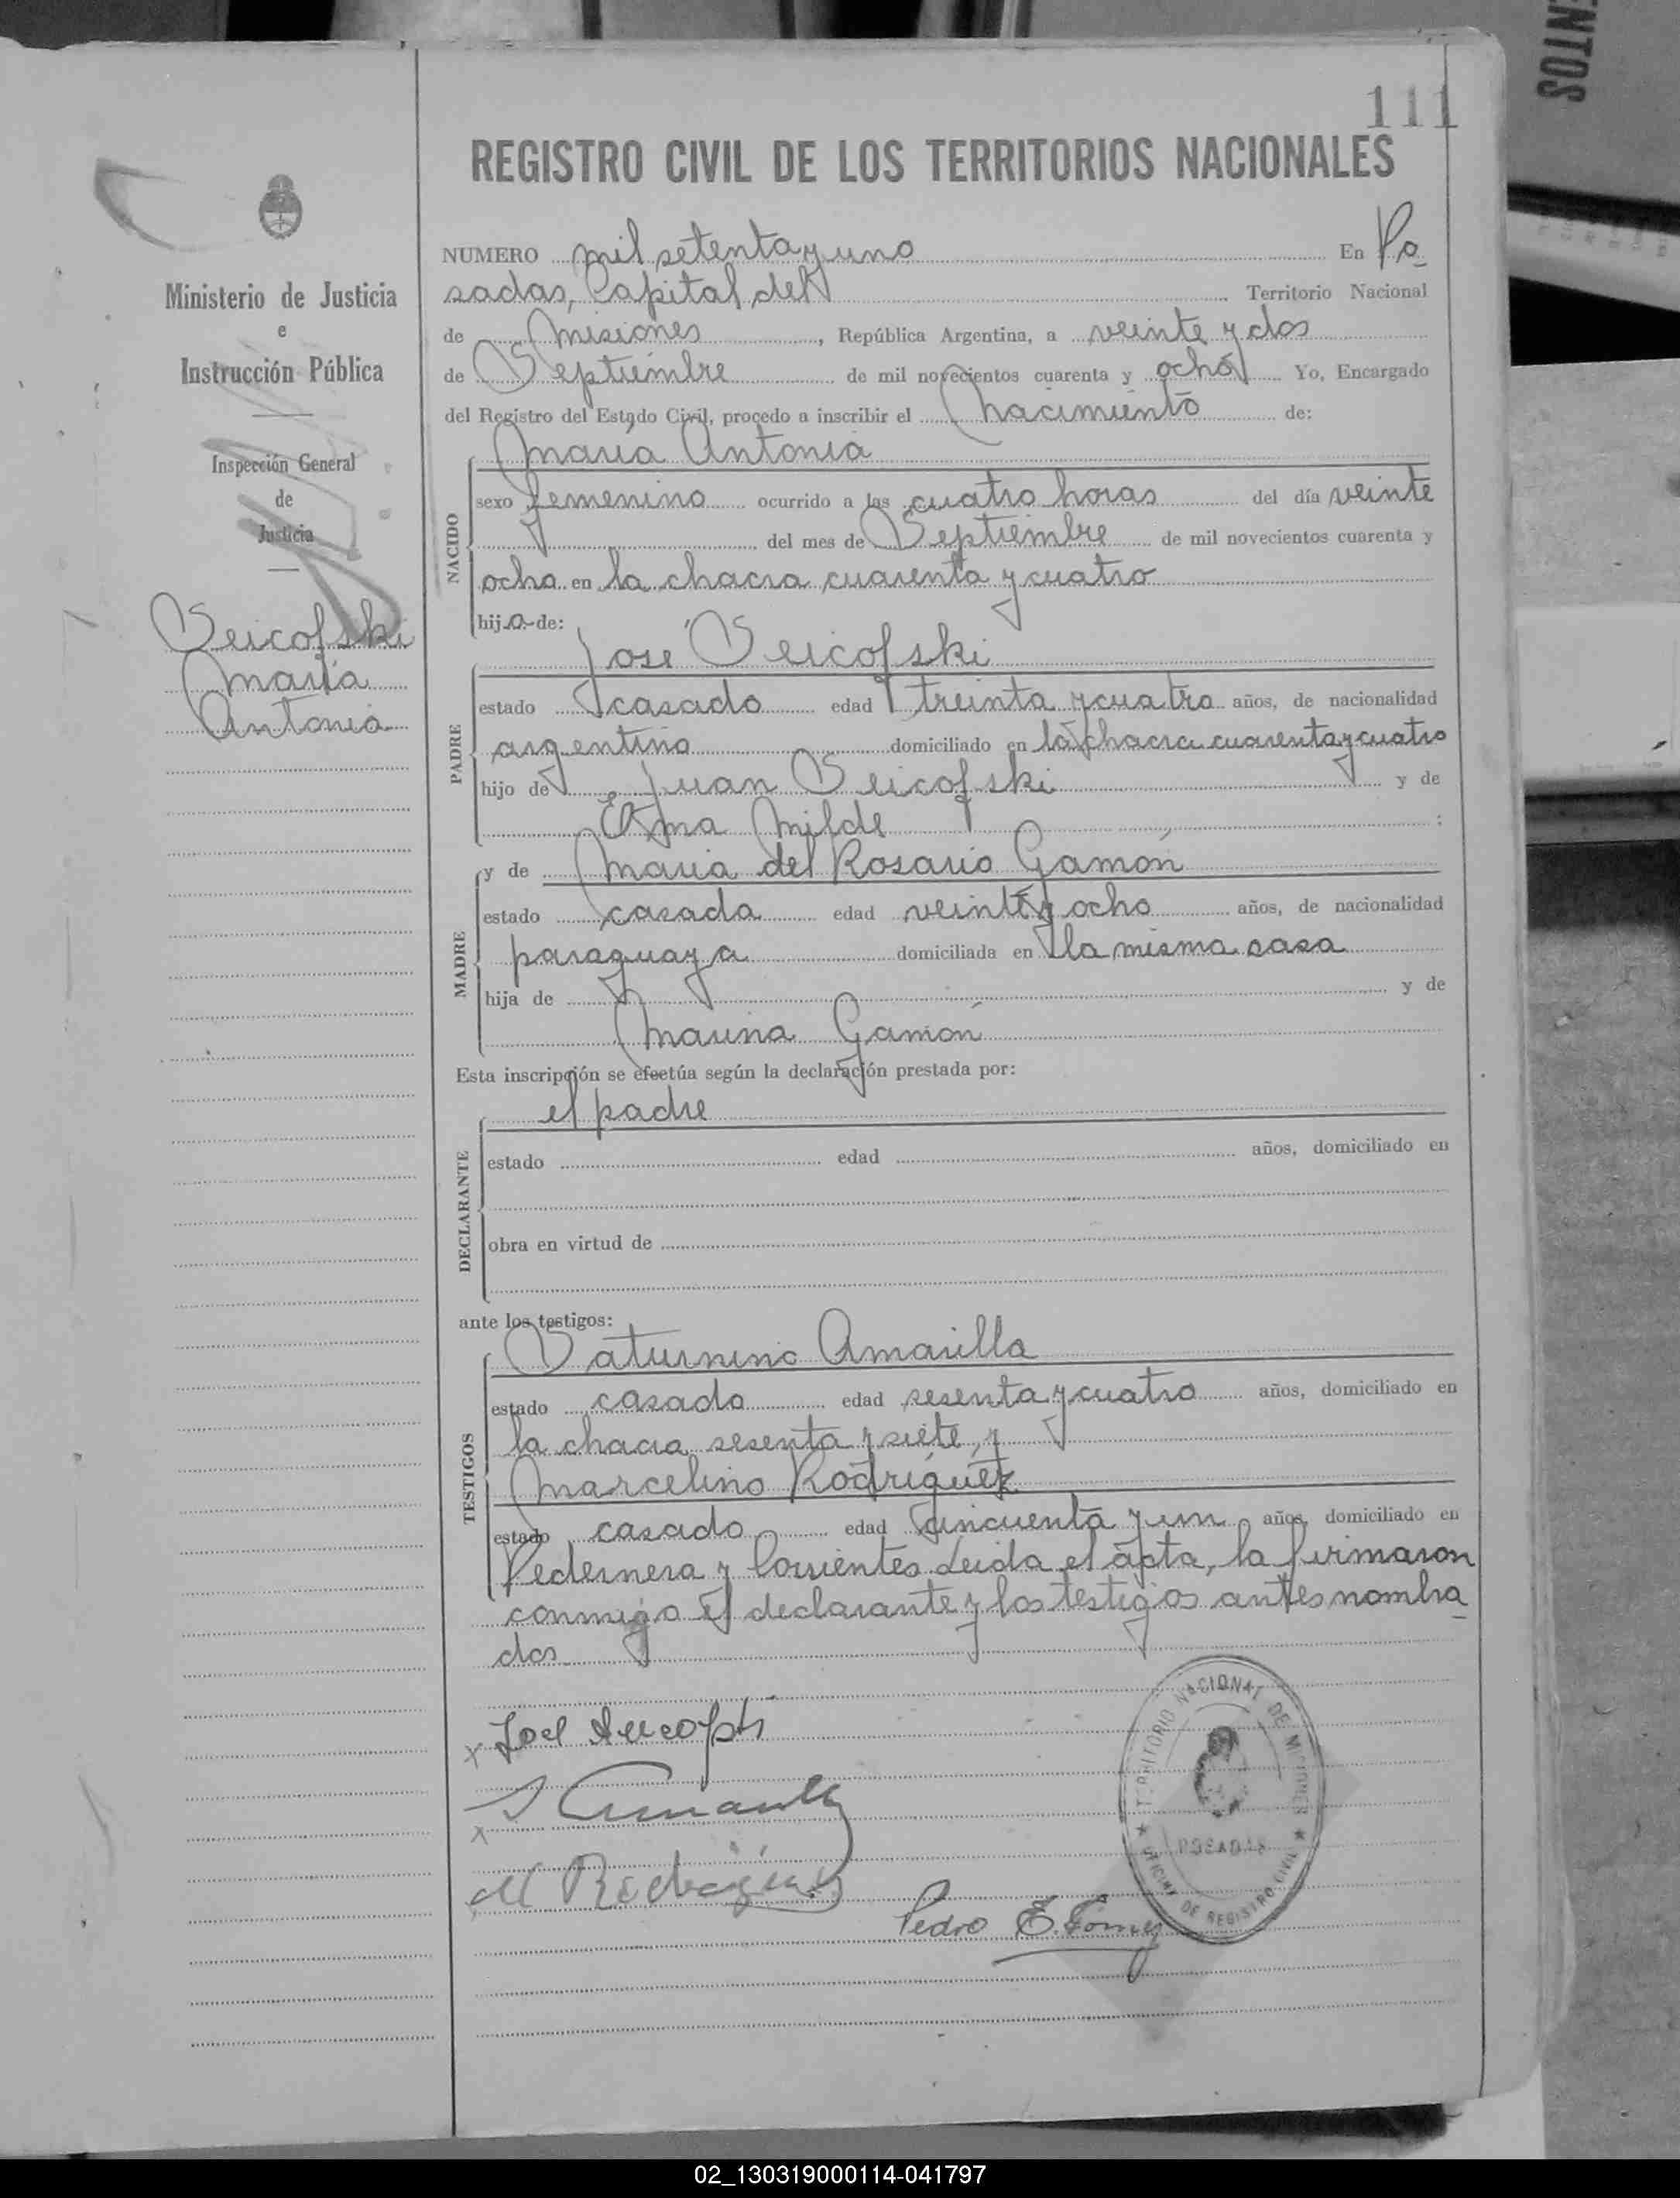 ENTOS
111
REGISTRO CIVIL DE LOS TERRITORIOS NACIONALES
Ministerio de Justicia
e
Instrucción Pública
Inspección General
de
Justicia
Seicofski
María
Antonia
NUMERO mil setenta y uno En Po
sadas, Capital del Territorio Nacional
de Misiones, República Argentina, a veinte y dos
de Septiembre de mil novecientos cuarenta y ocho Yo, Encargado
del Registro del Estado Civil, procedo a inscribir el nacimiento de:
NACIDO
María Antonia
sexo femenino ocurrido a las cuatro horas del día veinte
del mes de Septiembre de mil novecientos cuarenta y
ocho en la chacra cuarenta y cuatro
hija de:
PADRE
José Seicofski
estado casado edad treinta y cuatro años, de nacionalidad
argentino domiciliado en la chacra cuarenta y cuatro
hijo de Juan Seicofski y de
Ema Milde :
MADRE
y de María del Rosario Gamón
estado casada edad veinte y ocho años, de nacionalidad
paraguaya domiciliada en la misma casa
hija de y de
Maurina Gamón
Esta inscripción se efectúa según la declaración prestada por:
DECLARANTE
el padre
estado edad años, domiciliado en
obra en virtud de
ante los testigos:
TESTIGOS
Saturnino Amarilla
estado casado edad sesenta y cuatro años, domiciliado en
la chacra sesenta y siete, y
Marcelino Rodríguez
estado casado edad cincuenta y un años, domiciliado en
Pedernera y Corrientes Leida el acta, la firmaron
conmigo el declarante y los testigos antes nombra
dos
x José
S Amarilla
x
M Rodriguez
Pedro E. Gómez
TERRITORIO NACIONAL DE MISIONES
POSADAS
OFICINA DE REGISTRO CIVIL
02_130319000114-041797